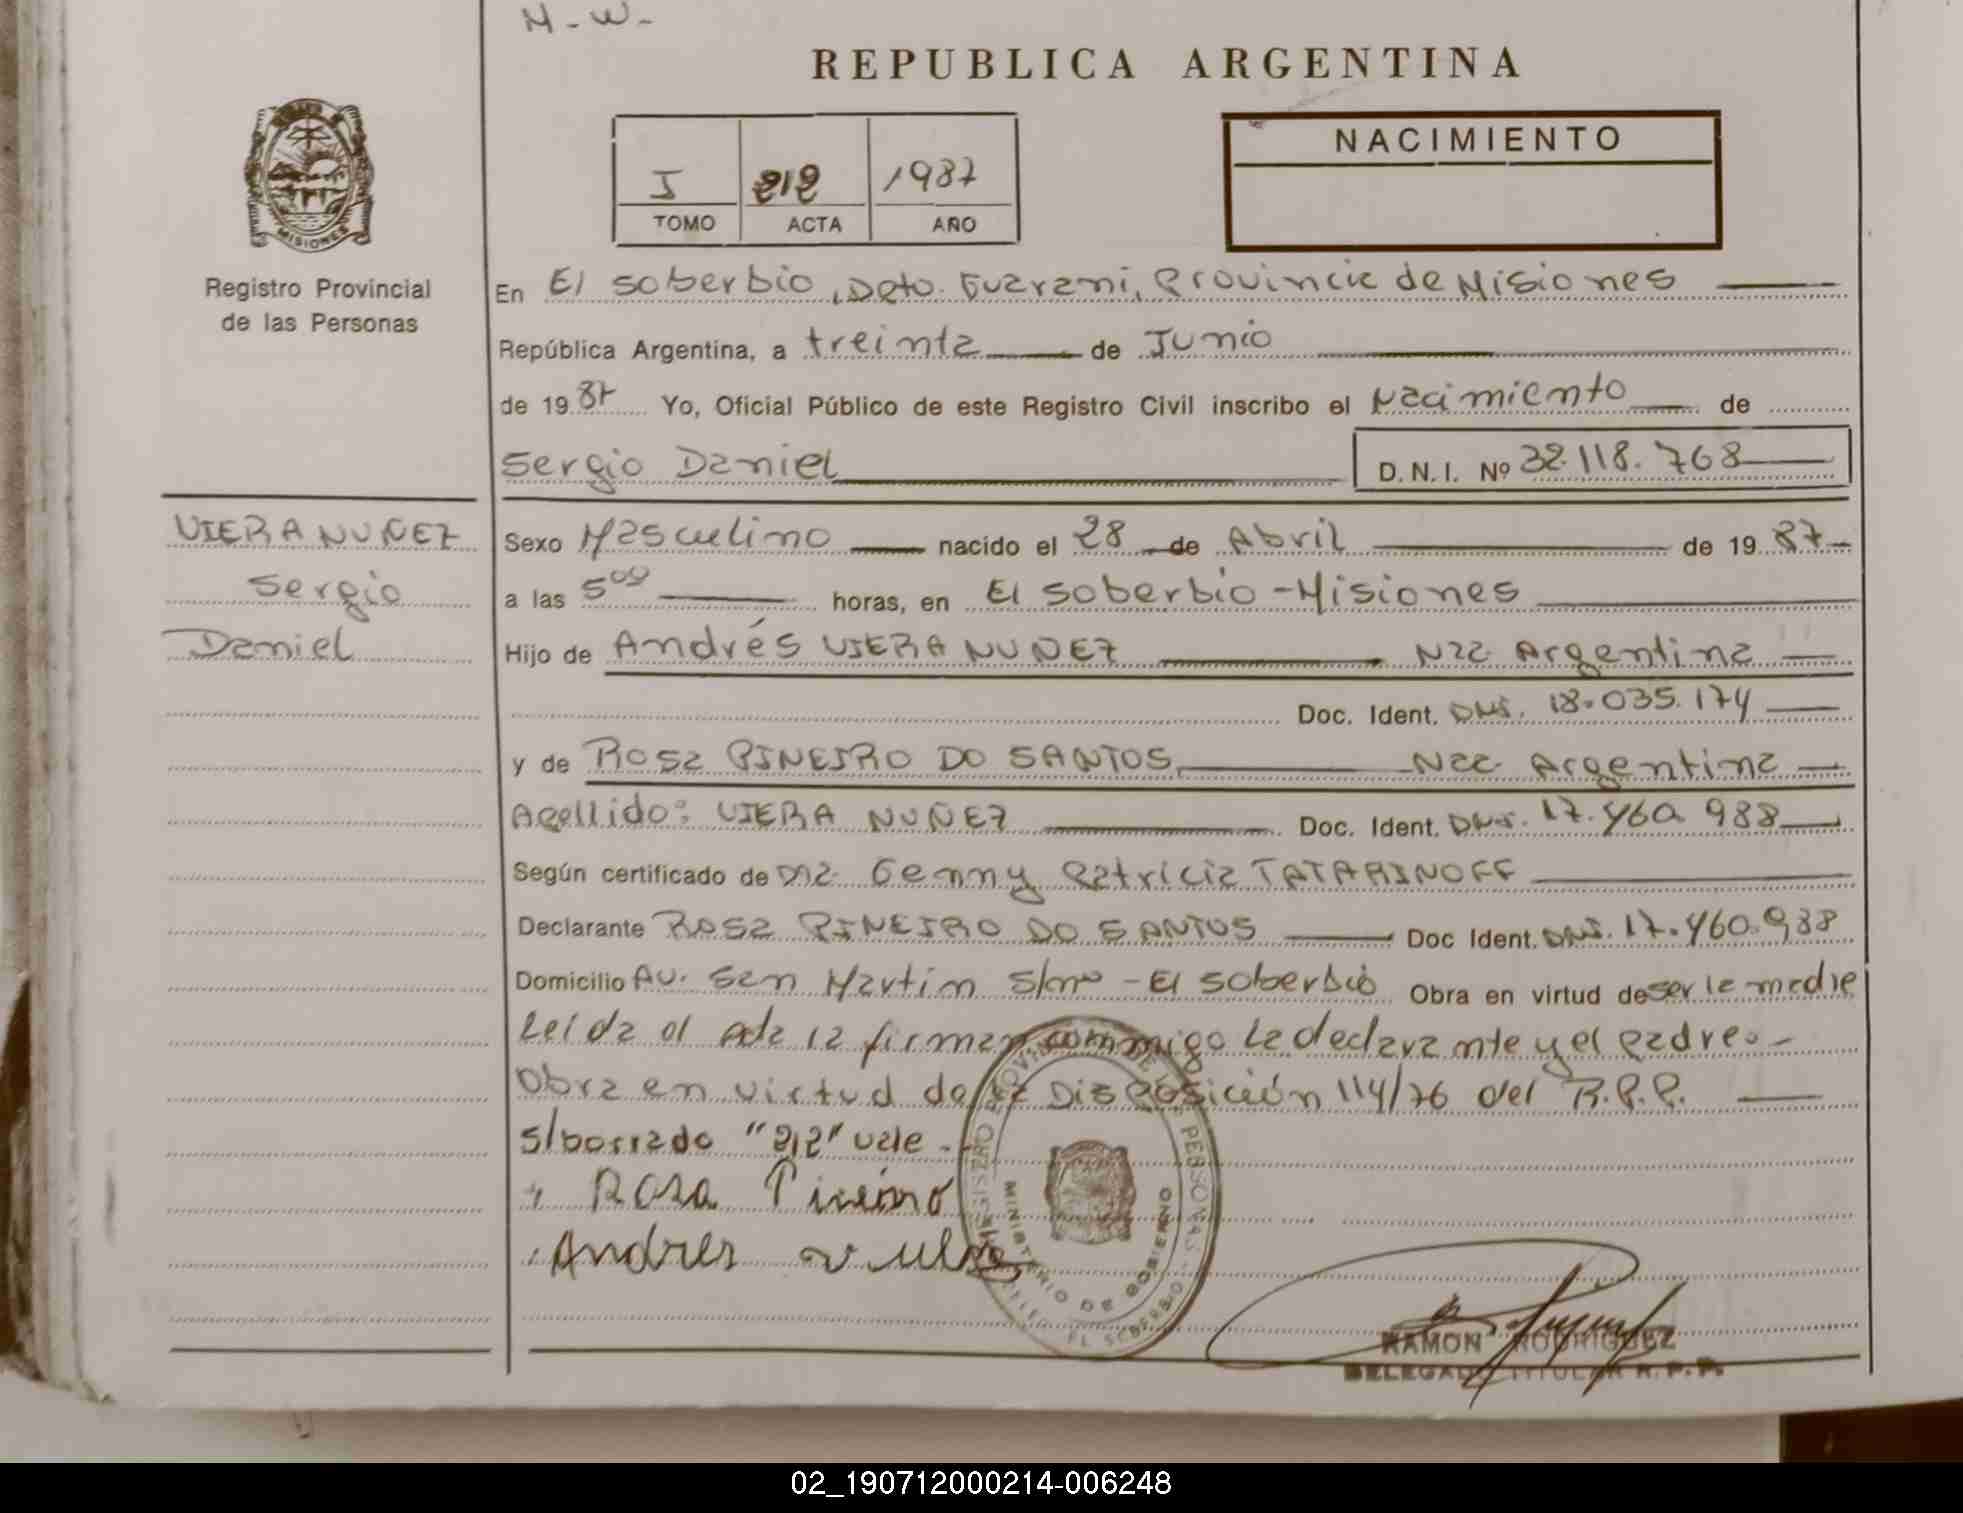 M-W-
REPUBLICA ARGENTINA
I 212 1987
TOMO ACTA AÑO
NACIMIENTO
MISIONES
Registro Provincial
de las Personas
En El Soberbio, Dpto. Guarani, Provincia de Misiones
República Argentina, a treinta de Junio
de 1987 Yo, Oficial Público de este Registro Civil inscribo el Nacimiento de
Sergio Daniel D.N.I. Nº 32.118.768
VIERA NUÑEZ
Sergio
Daniel
Sexo Masculino nacido el 28 de Abril de 1987
a las 5 00 horas, en El Soberbio - Misiones
Hijo de Andrés VIERA NUÑEZ Nac. Argentina
Doc. Ident. DNI. 18.035.174
y de Rosa PINEIRO DO SANTOS Nac. Argentina
Apellido: VIERA NUÑEZ Doc. Ident. DNI. 17.460.988
Según certificado de Dra. Genny Patricia TATARINOFF
Declarante Rosa PINEIRO DO SANTOS Doc Ident. DNI. 17.460.988
Domicilio Av. San Martín S/nº - El Soberbio Obra en virtud de ser la madre
Leída el acta la firman conmigo la declarante y el padre.-
Obra en virtud de la Disposición 114/76 del R.P.P.
s/borrado "212" vale.-
Rosa Pineiro
Andres
REGISTRO PROVINCIAL DE LAS PERSONAS
MINISTERIO DE GOBIERNO
EL SOBERBIO
RAMON RODRIGUEZ
DELEGADO TITULAR R.P.P.
02_190712000214-006248